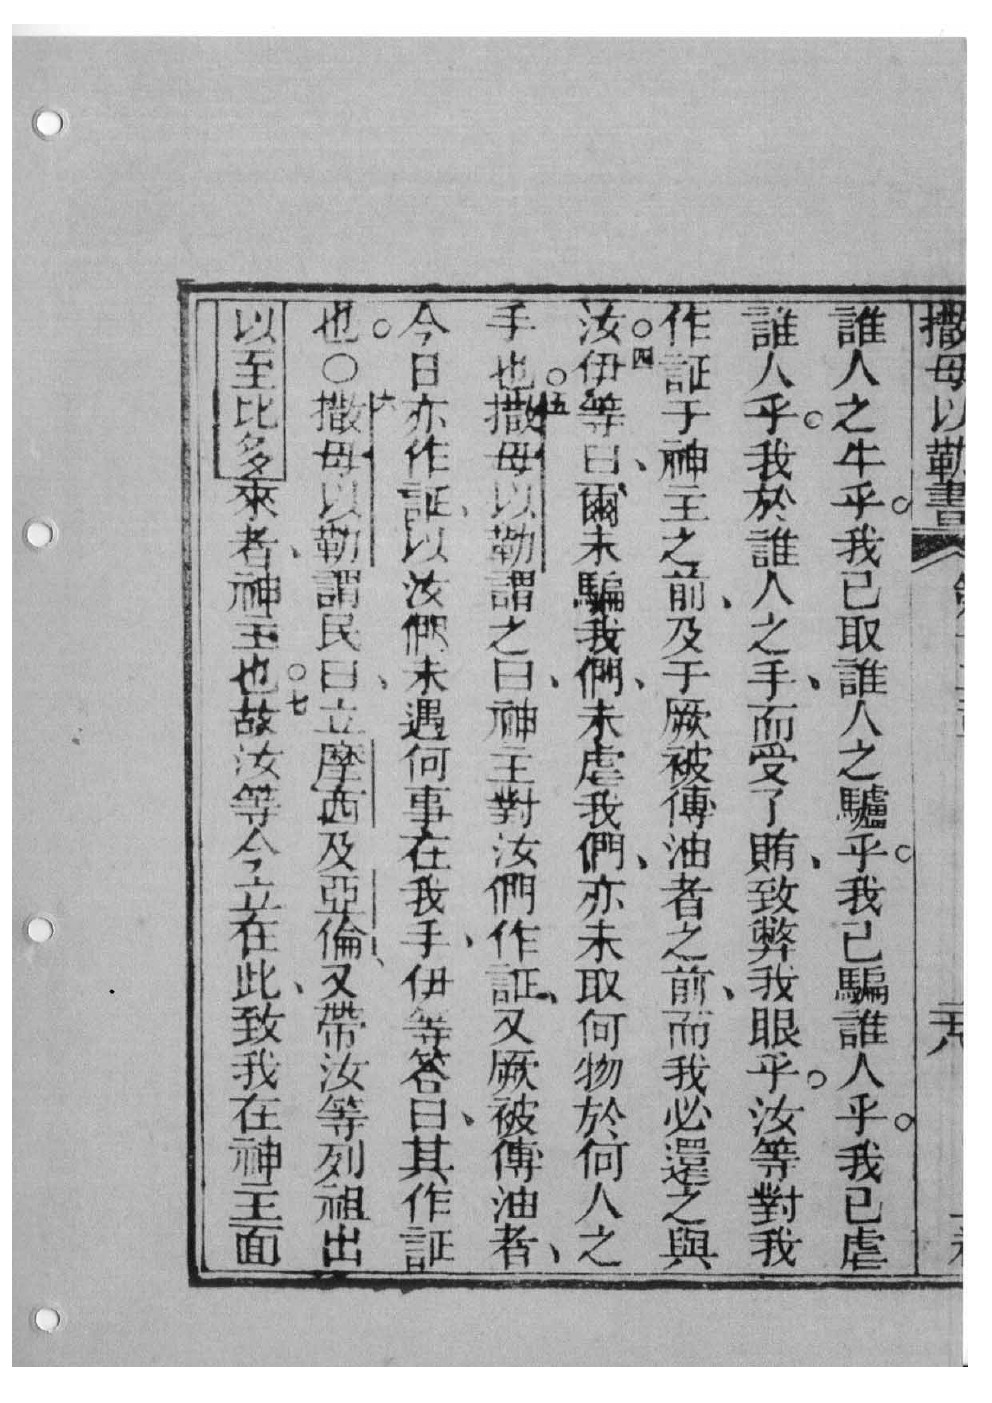 撒母以勒書
誰人之牛乎。我已取誰人之驢乎。我已騙誰人乎。我已虐
誰人乎。我於誰人之手、而受了賄、致弊我眼乎。汝等對我
作証于神主之前、及于厥被傅油者之前、而我必還之與
汝○四伊等曰、爾未騙我們、未虐我們、亦未取何物於何人之
手也○五撒母以勒謂之曰、神主對汝們作証、又厥被傅油者、
今日亦作証、以汝們未遇何事在我手、伊等答曰、其作証
也。○六撒母以勒謂民曰、立摩西及亞倫、又帶汝等列祖出
以至比多來者、神主也○七故汝等今立在此、致我在神主面